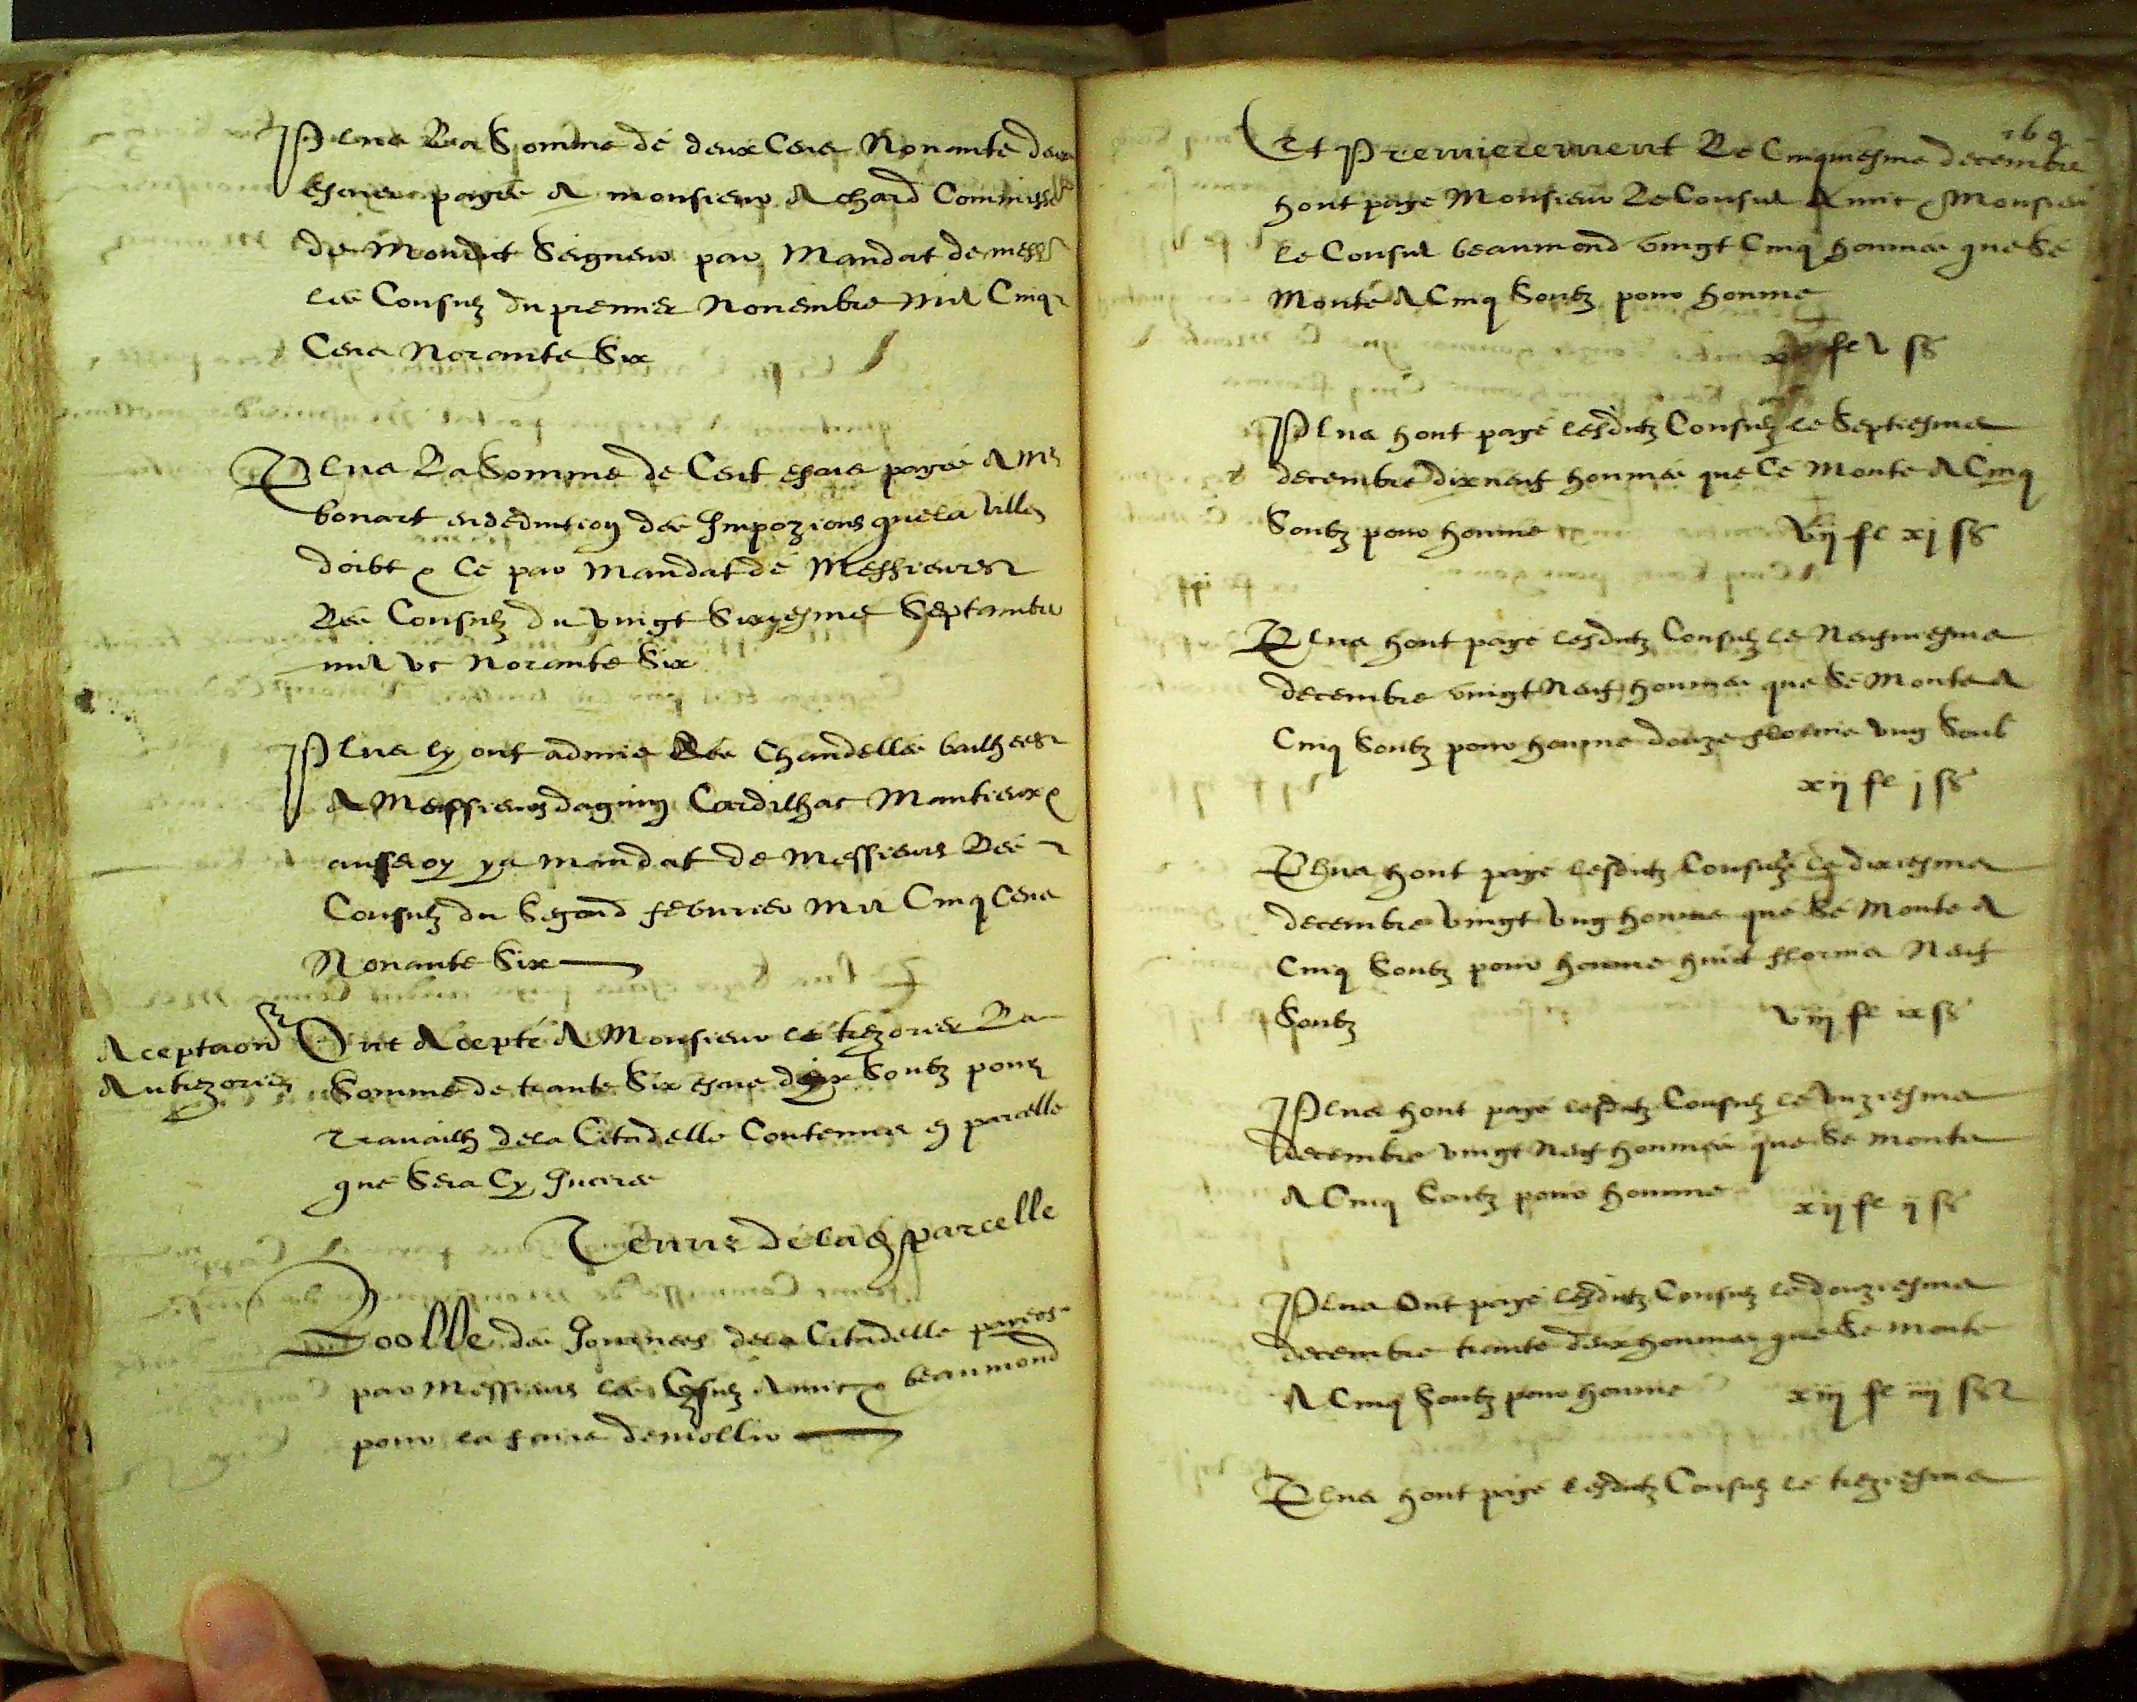 Plus La Somme de deux Cens Nonante deux
escus payés A monsieur Achard Commissre
de Mondict Seigneur par Mandat de messrs
les Consulz du premier Novembre Mil Cinq
Cens Nonante Six
Plus La Somme de Cent escus payés A Mr
bonart en deduction des Impozions que la ville
doibt & Ce par Mandat de Messieurs
Les Consulz du vingt Sixiesme Septambre
mil vc Nonante Six
Plus ly ont admis Les Chandelles bailhees
A Messieurs daguin Cardilhac Mantieux &
auferoy ya mandat de Messieurs Les
Consulz du Segond febvrier Mil Cinq Cens
Nonante Six
Aceptaon
Au trezorier
Ont Acepté A Monsieur le trezorier La
Somme de trante Six escus dix Soubz pour
travailh de la Citadelle Contenus en parcelle
que Sera Cy Inseree
Tenur de la parcelle
Roolle des Journees de la Citadelle payees
par Messieurs les Consulz Amic & beaumond
pour la faire demollir
169
Et Premierement Le Cinquiesme decembre
hont payé Monsieur Le Consul Amic & Monsieur
le Consul beaumond vingt Cinq hommes que Se
Monte A Cinq Soubz pour homme
x fl v ss
Plus hont payé lesditz Consulz le Septiesme
decembre dixneuf hommes que Ce Monte A Cinq
Soubz pour homme vij fl xj ss
Plus hont payé lesditz Consulz le Neufviesme
decembre vingt Neuf hommes que Se Monte A
Cinq Soubz pour homme douze florins ung Soul
xij fl j ss
Plus hont payé lesditz Consulz le dixiesme
decembre vingt ung homme que Se Monte A
Cinq Soubz pour homme huict florins Neuf
Soubz viij fl ix ss
Plus hont payé lesditz Consulz le Unziesme
decembre vingt Neuf hommes que Se monte
A Cinq Soubz pour homme xij fl ij ss
Plus Ont payé lesditz Consulz le douziesme
decembre trante deux hommes que Se monte
A Cinq Soubz pour homme xiij fl iiij ss
Plus hont payé lesditz Consulz le treziesme